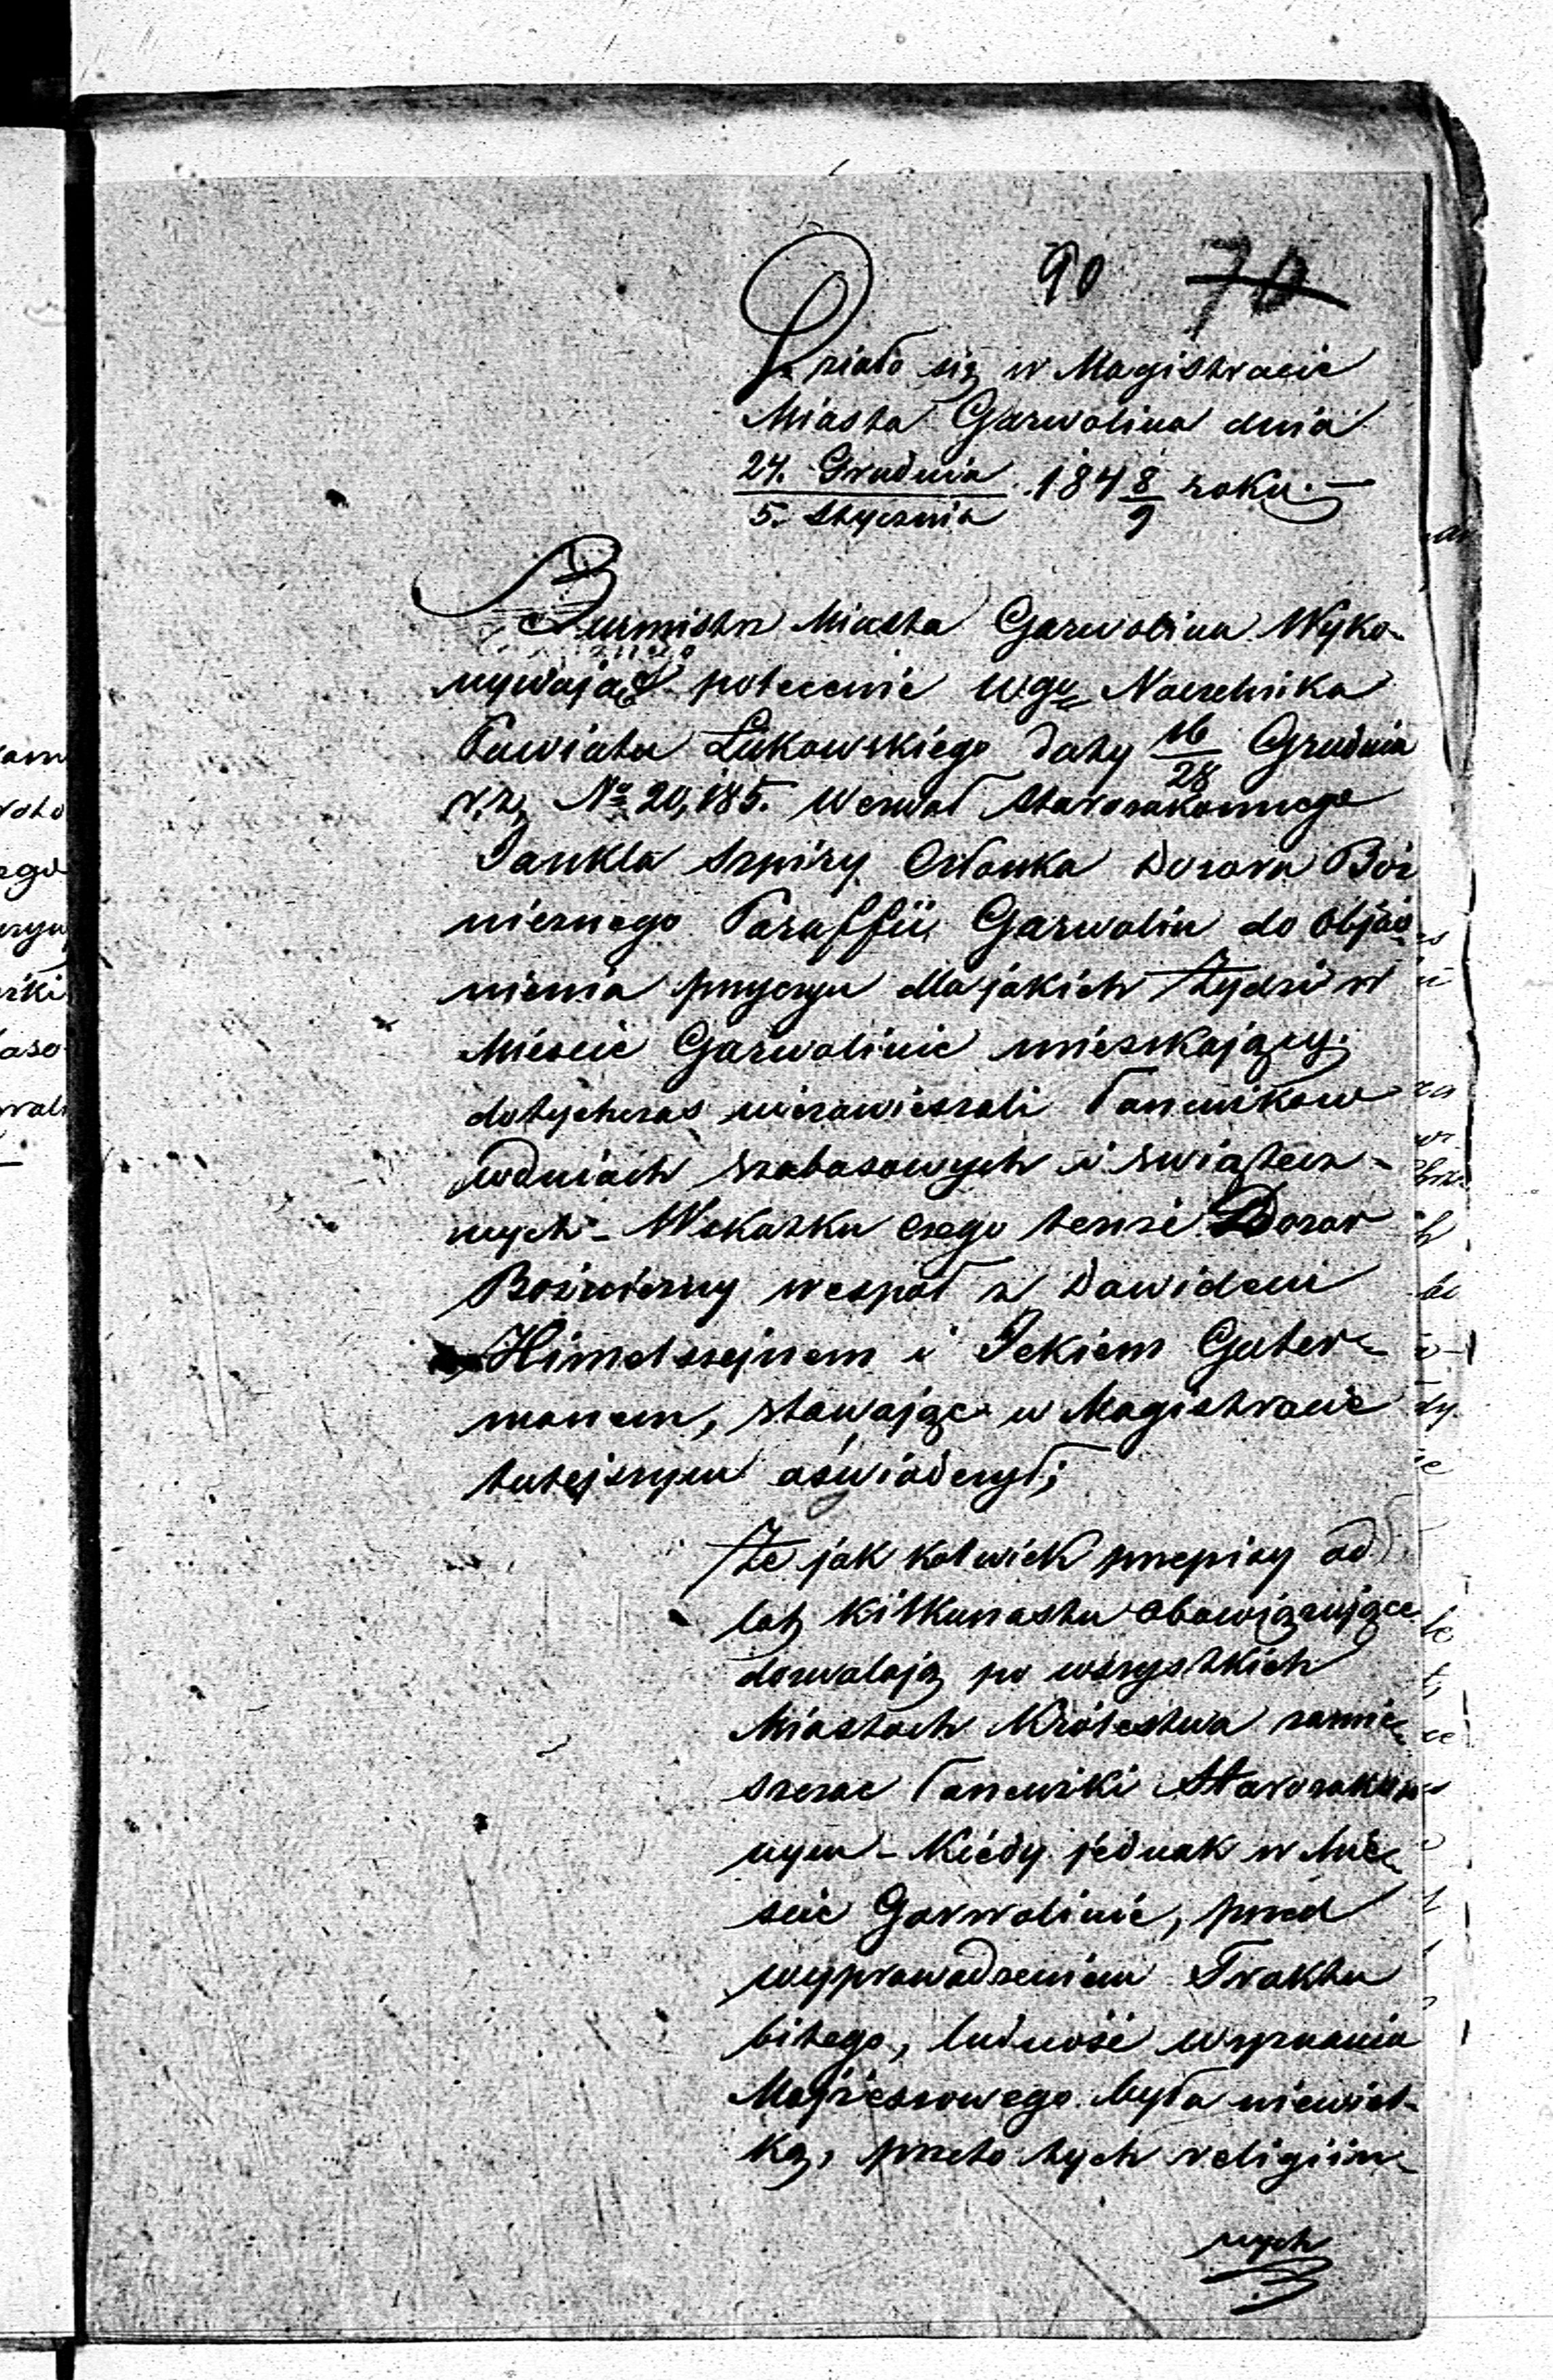 90 70
Działo się w Magistracie
Miasta Garwolina dnia
24. Grudnia / 5. Stycznia 184 8/9 roku. —
Burmistrz Miasta Garwolina Wyko-
nywając polecenie Wgo Naczelnika
Powiatu Łukowskiego daty 16/28 Grudnia
r.z. No 20,185. Wezwał Starozakonnego
Jankla Szpiry Członka Dozoru Boż
nicznego Paraffii Garwolin do objaś-
nienia przyczyn dla jakich Żydzi w
Mieście Garwolinie mieszkający
dotychczas niezawieszali Łancuików
wdniach szabasowych i swiątecz-
nych – Wskutku czego tenże Dozor
Bożniczny wespół z Dawidem
Himelszejnem i Ickiem Guter-
manem, stawając w Magistracie
tutejszym oświadczył;
Że jak kolwiek przepisy od
lat kilkunastu obowiązujące
dozwalają po wszystkich
Miastach Królestwa zamie-
szczac Łancuiki Starozakon
nym – Kiedy jednak w Mie-
scie Garwolinie, przed
wyprowadzeniem Traktu
bitego, ludność wyznania
Mojżeszowego była niewiel-
ką, przeto tych religiin-
nych